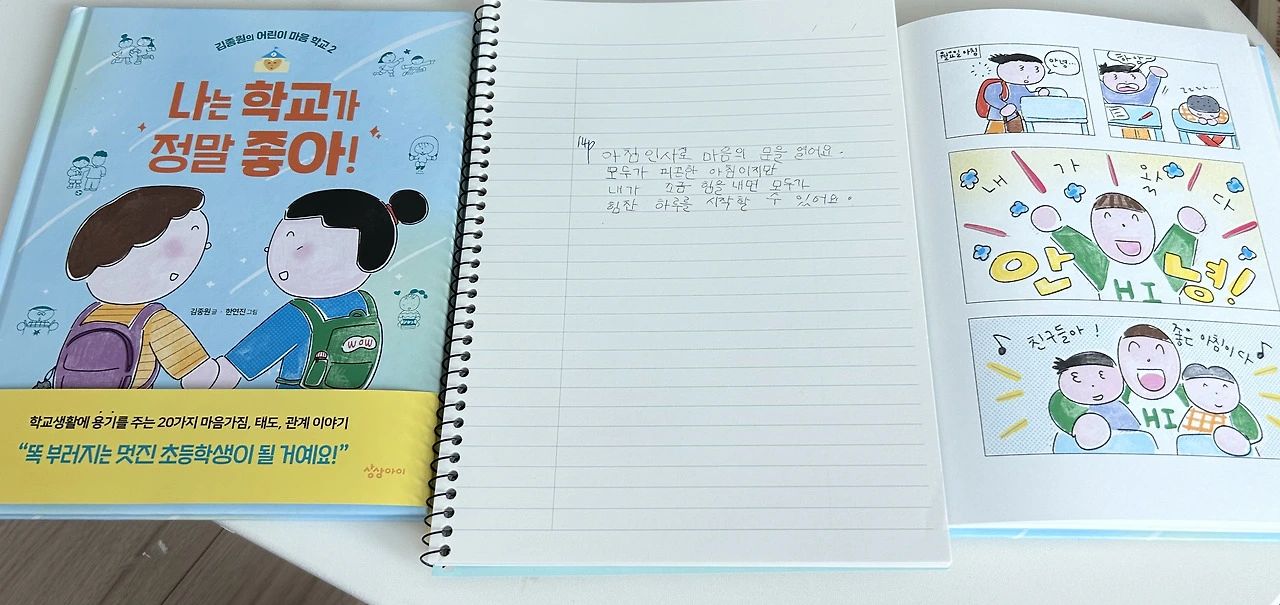 김종원의 어린이 마음 학교 2
나는 학교가
정말 좋아!
김종원 글 · 한연진 그림
wow
학교생활에 용기를 주는 20가지 마음가짐, 태도, 관계 이야기
“똑 부러지는 멋진 초등학생이 될 거예요!”
상상아이
14p
아침인사로 마음의 문을 열어요.
모두가 피곤한 아침이지만
내가 조금 힘을 내면 모두가
힘찬 하루를 시작할 수 있어요.
월요일 아침
안녕...
내가 왔다
안녕!
HI
친구들아!
좋은 아침이다
HI